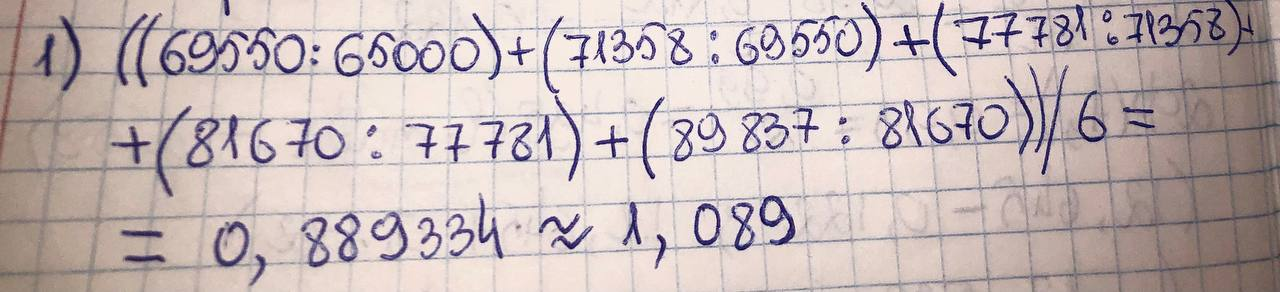 1) ((69550:65000)+(71358:69550)+(77781:71358)+
+(81670:77781)+(89837:81670))/6=
= 0,889334 ≈ 1,089